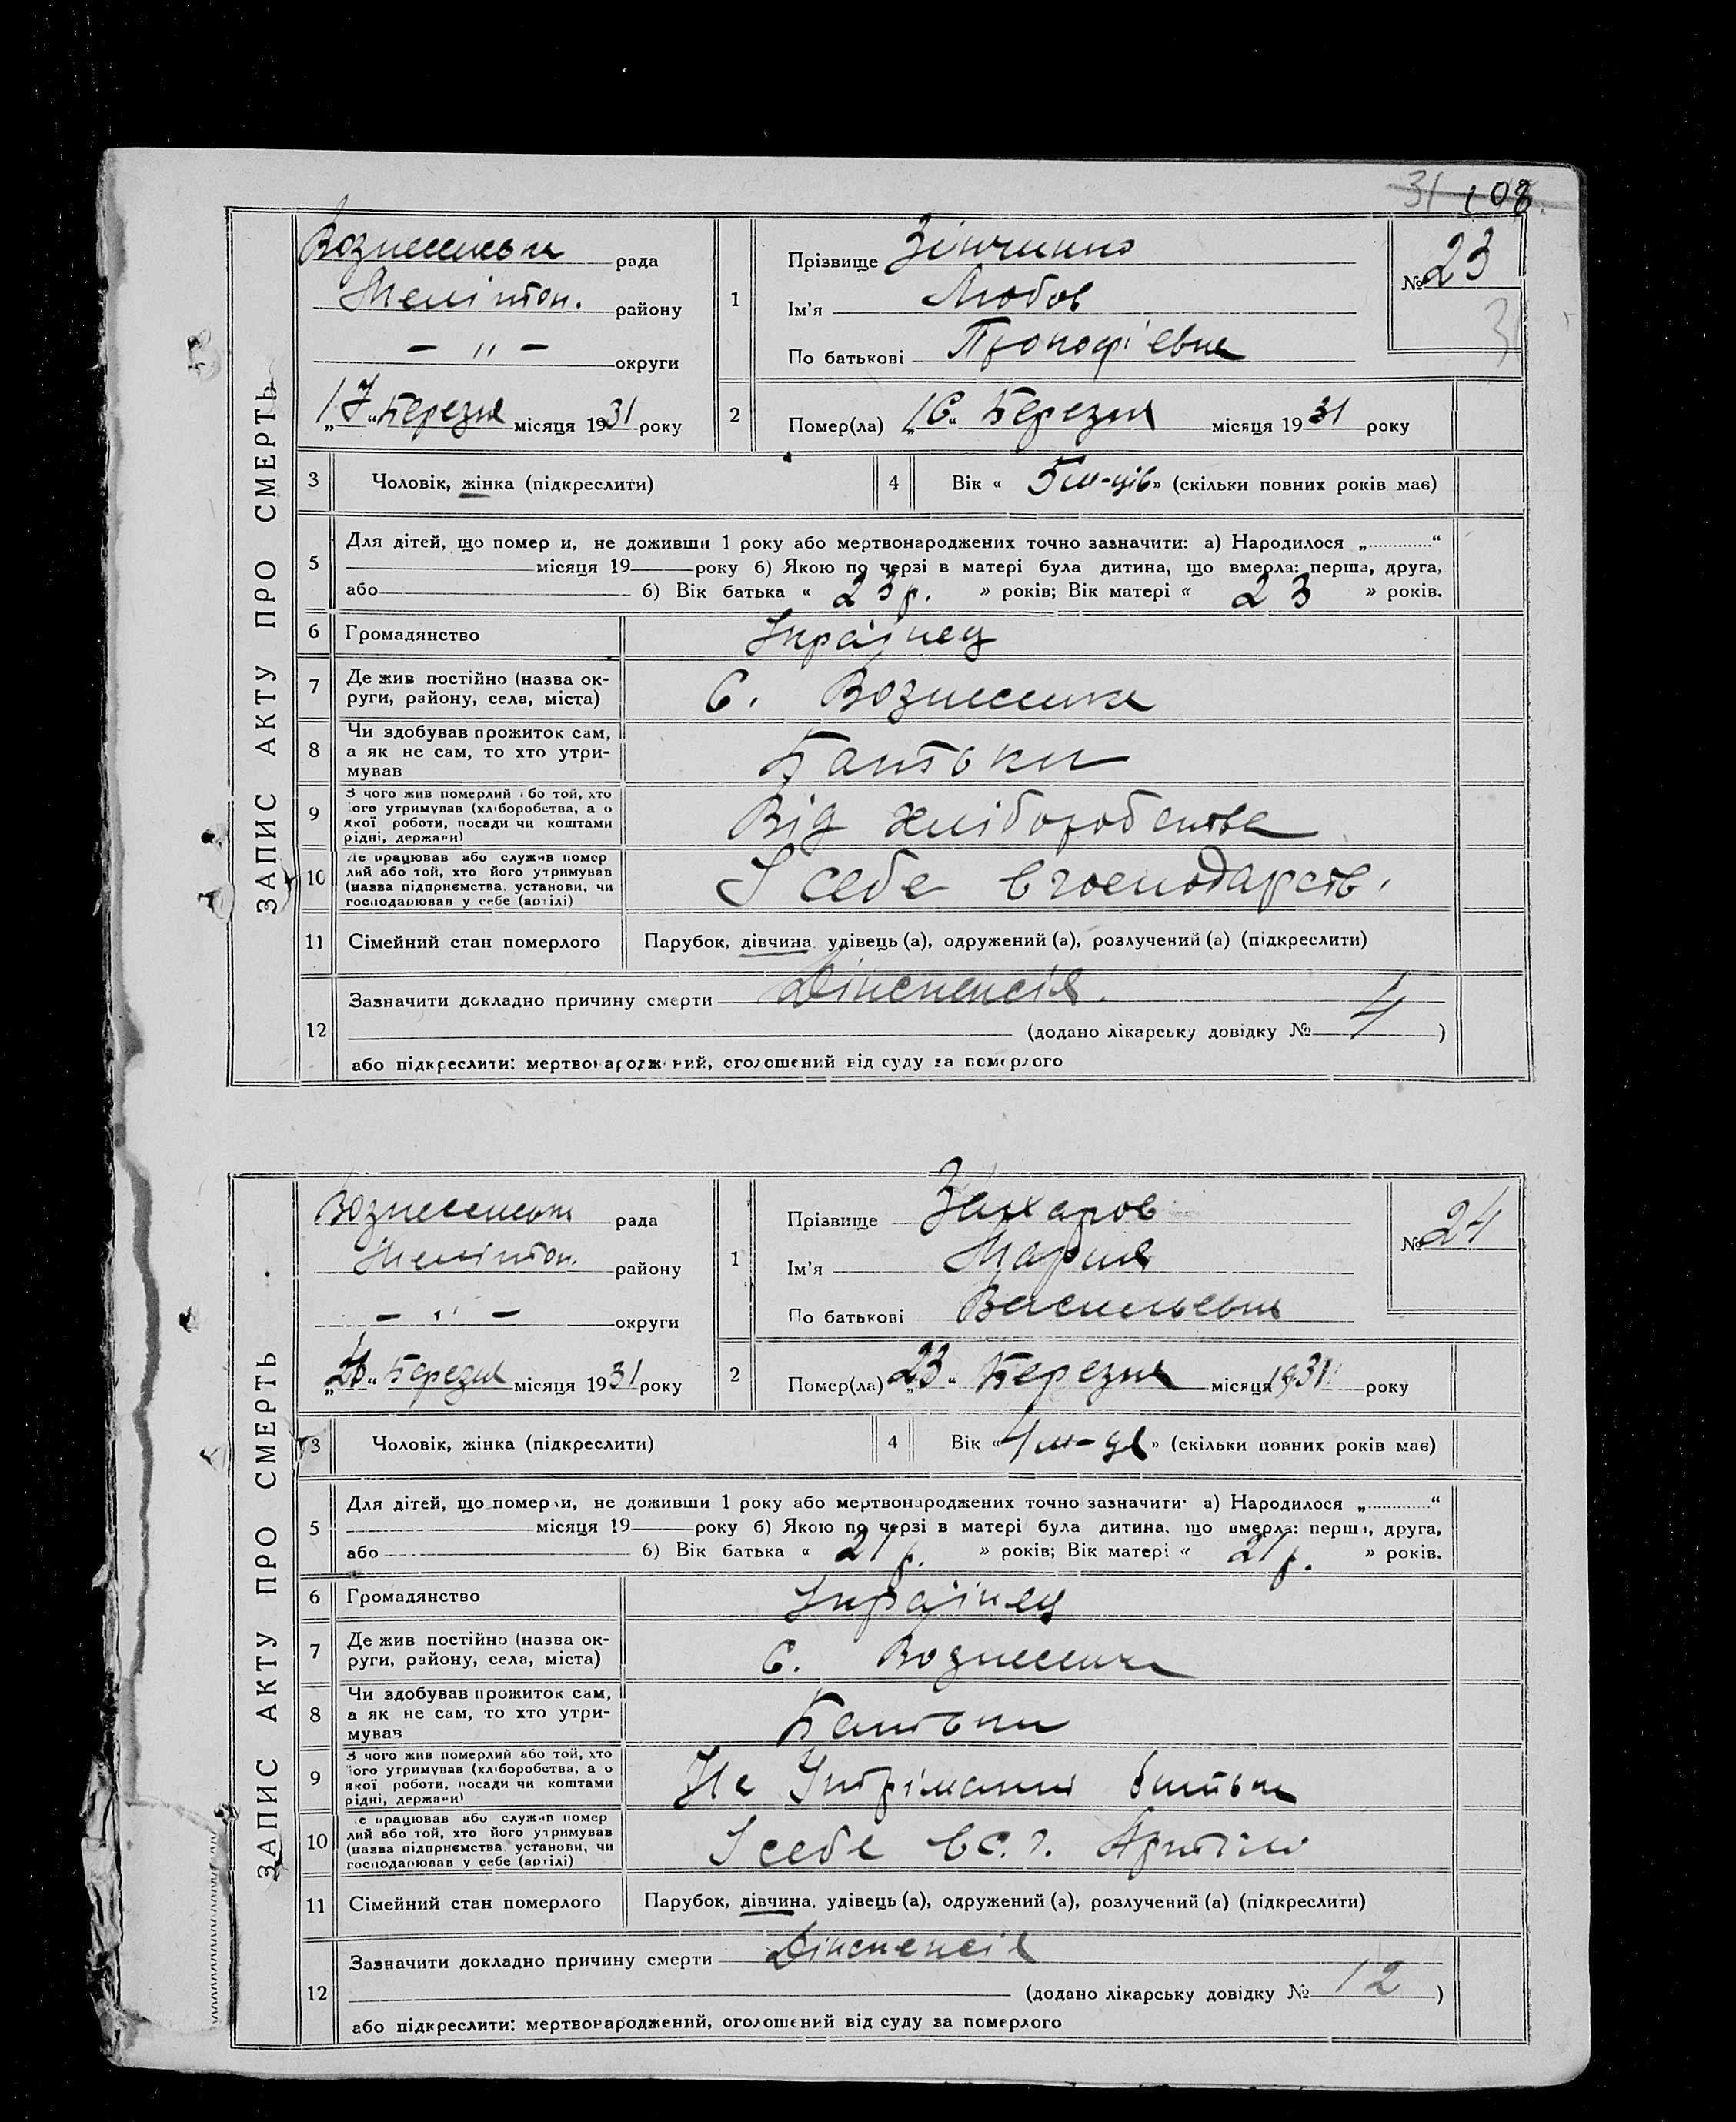 31 108
ЗАПИС АКТУ ПРО СМЕРТЬ
Вознесенська рада
Мелітоп. району
— " — округи
„17“ Березня місяця 1931 року
1
Прізвище Зінченко
Ім'я Любов
По батькові Прокоф'евна
№ 23
3
2
Помер(ла) „16“ Березня місяця 1931 року
3 Чоловік, жінка (підкреслити)
4 Вік « 5 м-ців » (скільки повних років має)
5 Для дітей, що помер и, не доживши 1 року або мертвонароджених точно зазначити: а) Народилося „.............“
місяця 19 року б) Якою по черзі в матері була дитина, що вмерла: перша, друга,
або б) Вік батька « 23 р. » років; Вік матері « 23 » років.
6 Громадянство Українец
7 Де жив постійно (назва ок-
руги, району, села, міста) С. Вознесенка
8 Чи здобував прожиток сам,
а як не сам, то хто утри-
мував Батьки
9 З чого жив померлий або той, хто
його утримував (хліборобства, а о
якої роботи, посади чи коштами
рідні, держави) Від хліборобства
10 Де працював або служив помер
лий або той, хто його утримував
(назва підприємства, установи, чи
господарював у себе (артілі) У себе в господарств.
11 Сімейний стан померлого Парубок, дівчина, удівець (а), одружений (а), розлучений (а) (підкреслити)
12 Зазначити докладно причину смерти Діспепсія.
(додано лікарську довідку № 4 )
або підкреслити: мертвонароджений, оголошений від суду за померлого
ЗАПИС АКТУ ПРО СМЕРТЬ
Вознесенськ рада
Мелітоп. району
— " — округи
Березня місяця 1931 року
1
Прізвище Захаров
Ім'я Мария
По батькові Васильевна
№ 24
2
Помер(ла) „23“ Березня місяця 1931 року
3 Чоловік, жінка (підкреслити)
4 Вік « 4 м-ця » (скільки повних років має)
5 Для дітей, що померли, не доживши 1 року або мертвонароджених точно зазначити: а) Народилося „.............“
місяця 19 року б) Якою по черзі в матері була дитина, що вмерла: перша, друга,
або б) Вік батька « 21 р. » років; Вік матері « 21 р. » років.
6 Громадянство Українец
7 Де жив постійно (назва ок-
руги, району, села, міста) С. Вознесенка
8 Чи здобував прожиток сам,
а як не сам, то хто утри-
мував Батьки
9 З чого жив померлий або той, хто
його утримував (хліборобства, а о
якої роботи, посади чи коштами
рідні, держави) На Утріманні батьки
10 Де працював або служив помер
лий або той, хто його утримував
(назва підприємства, установи, чи
господарював у себе (артілі) У себе в с. г. Артілі
11 Сімейний стан померлого Парубок, дівчина, удівець (а), одружений (а), розлучений (а) (підкреслити)
12 Зазначити докладно причину смерти Діспепсія
(додано лікарську довідку № 12 )
або підкреслити: мертвонароджений, оголошений від суду за померлого